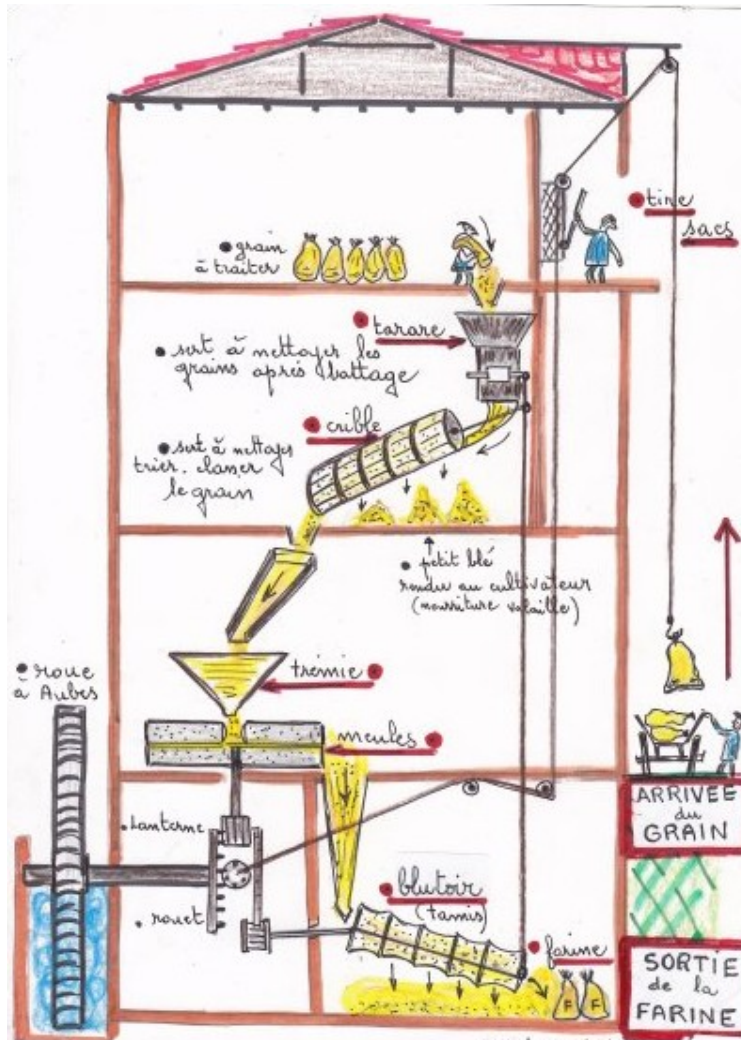 tire
sacs
grain
à traiter
tarare
sert à nettoyer les
grains après battage
crible
sert à nettoyer
trier. classer
le grain
petit blé
rendu au cultivateur
(nourriture volaille)
roue
à Aubes
trémie
meules
ARRIVÉE
du
GRAIN
Lanterne
rouet
blutoir
(tamis)
farine
F F
SORTIE
de la
FARINE